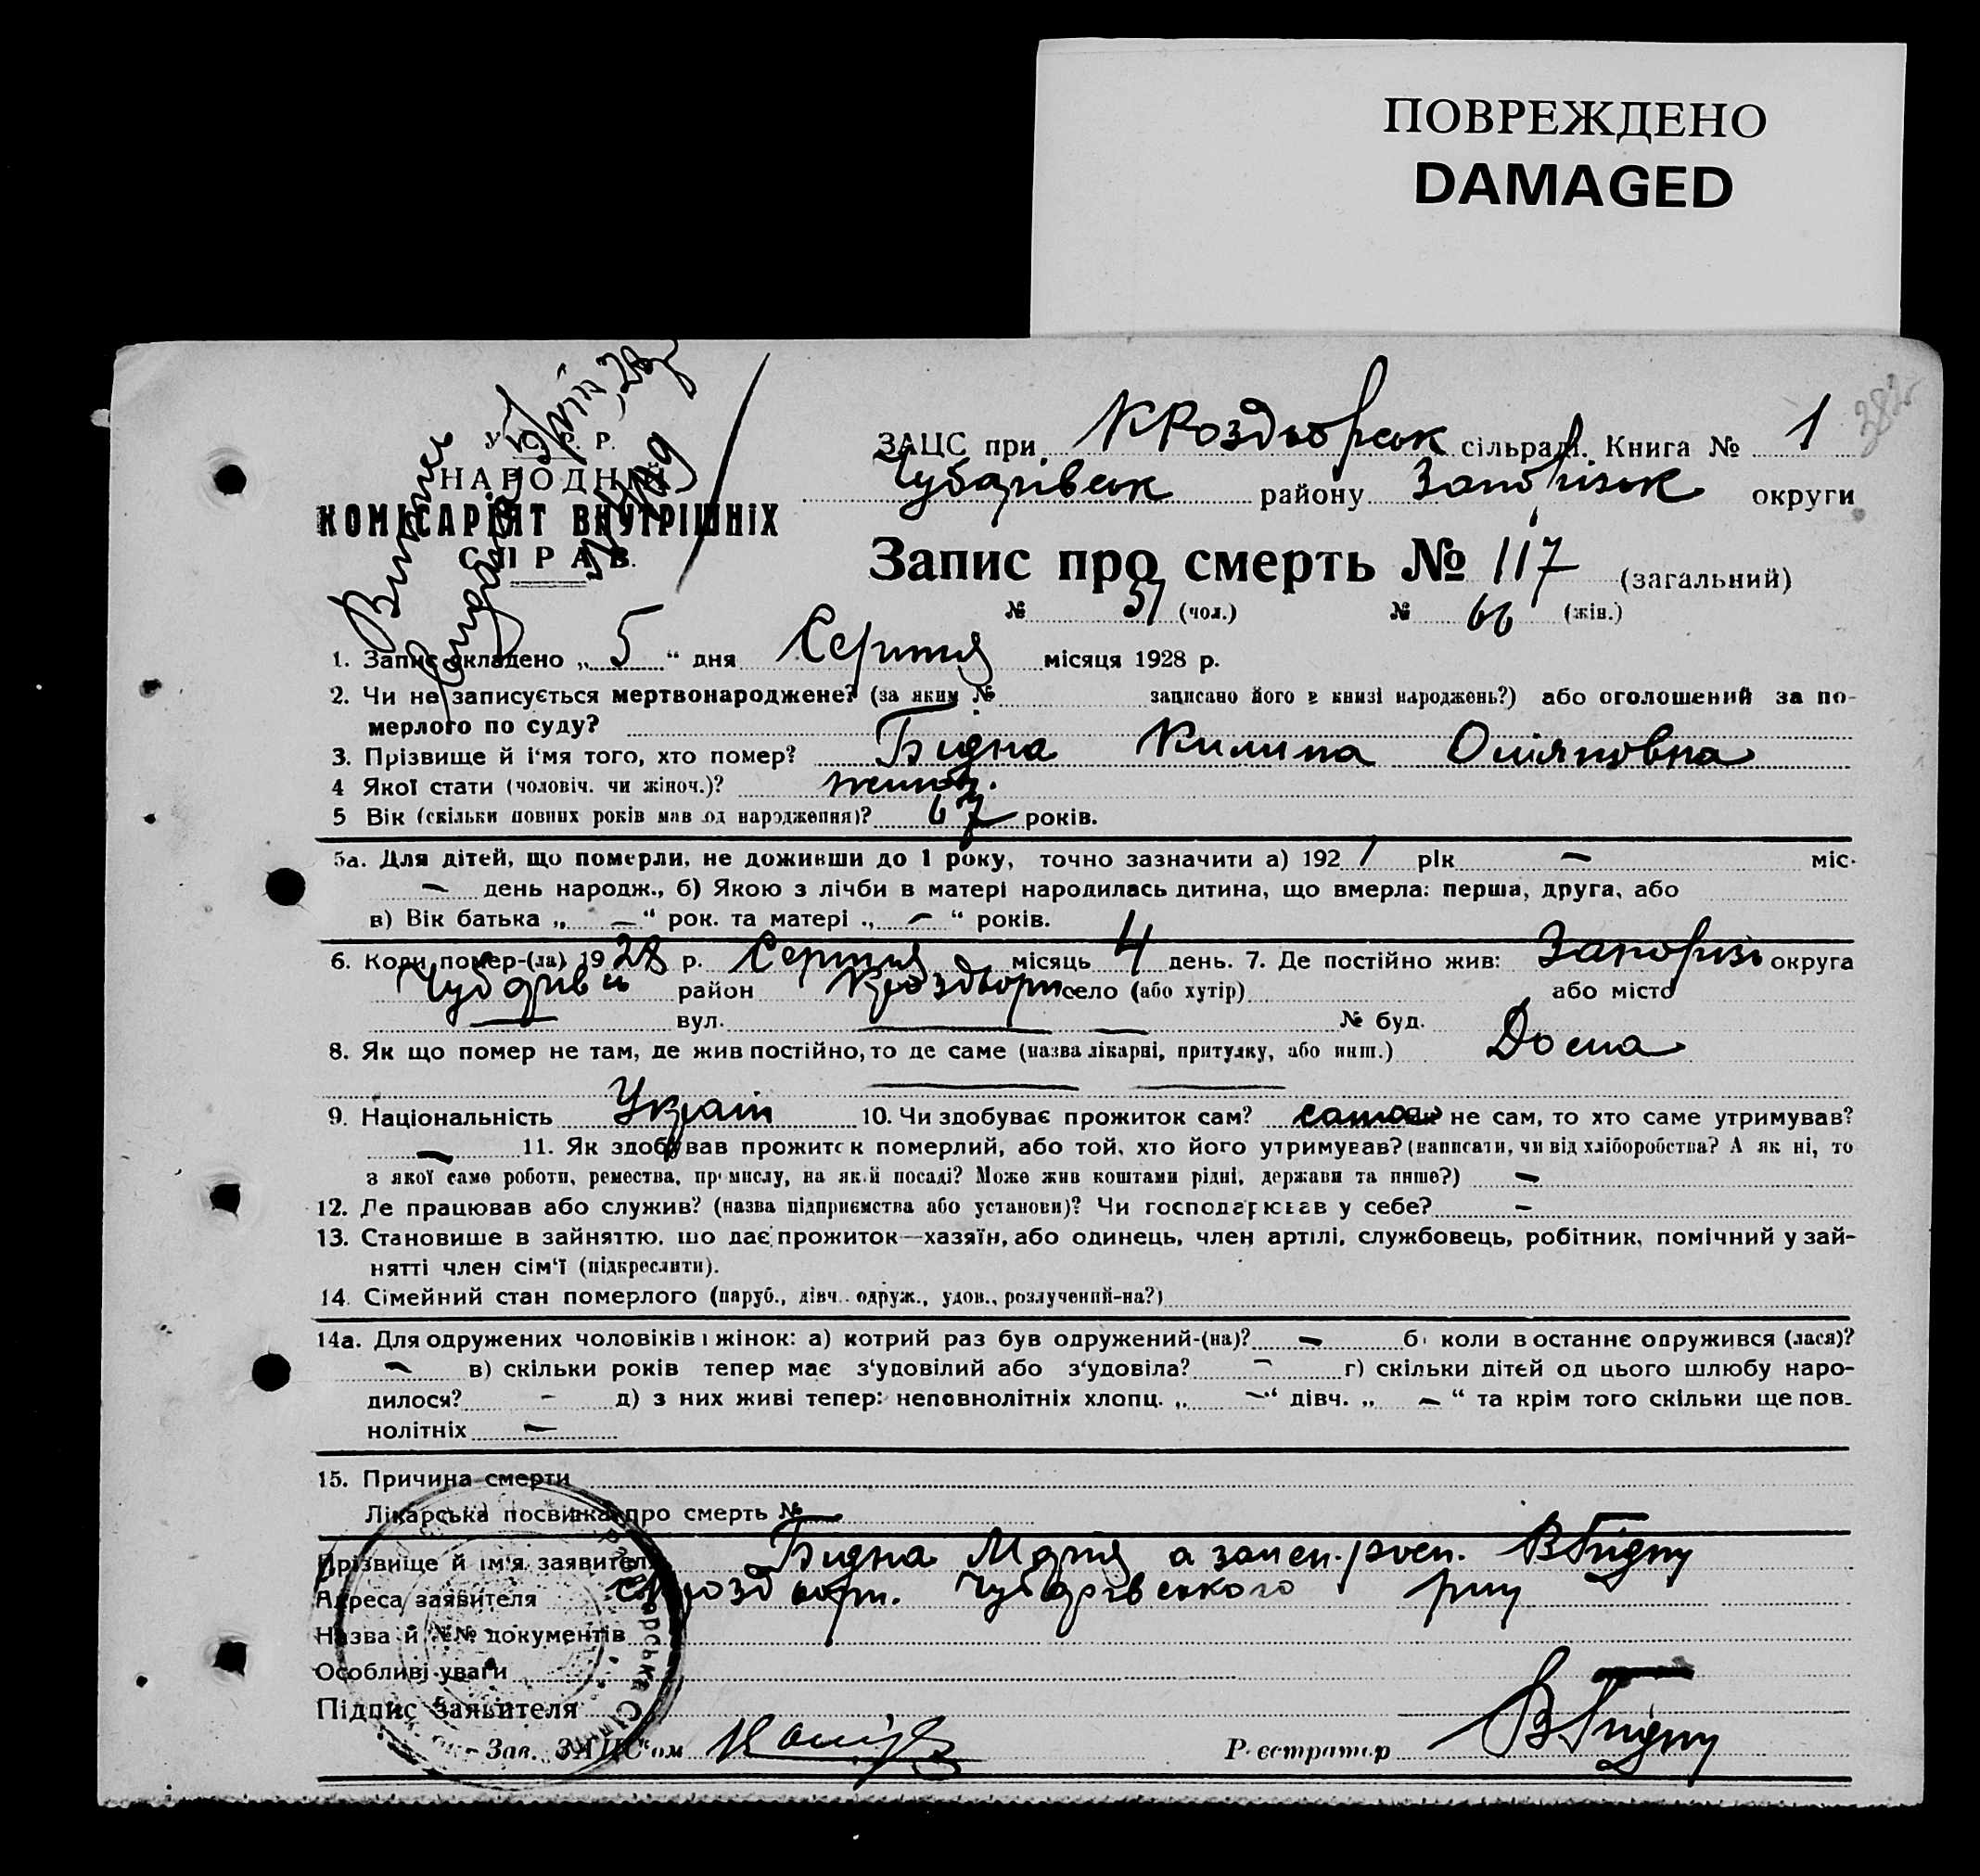 ПОВРЕЖДЕНО
DAMAGED
382
У. С. Р. Р.
НАРОДНИЙ
КОМІСАРІЯТ ВНУТРІШНІХ
СПРАВ.
ЗАЦС при КРоздорськ сільраді. Книга № 1
Чубарівськ району Запорізьк округи
Запис про смерть № 117 (загальний)
№ 51 (чол.) № 66 (жін.)
1. Запис складено „ 5 “ дня Серпня місяця 1928 р.
2. Чи не записується мертвонароджене? (за яким № записано його в книзі народжень?) або оголошений за по-
мерлого по суду?
3. Прізвище й і‘мя того, хто помер? Бидна Килина Омяновна
4 Якої стати (чоловіч. чи жіноч.)? жиноч.
5 Вік (скільки повних років мав од народження)? 67 років.
5а. Для дітей, що померли, не доживши до 1 року, точно зазначити а) 192 / рік — міс.
— день народж., б) Якою з лічби в матері народилась дитина, що вмерла: перша, друга, або
в) Вік батька „ — “ рок. та матері „ — “ років.
6. Коли помер-(ла) 1928 р. Серпня місяць 4 день. 7. Де постійно жив: Запоризь округа
Чубарівсь район Кроздорн село (або хутір) або місто
— вул. — — № буд.
8. Як що помер не там, де жив постійно, то де саме (назва лікарні, притулку, або инш.) Дома
9. Національність Україн 10. Чи здобуває прожиток сам? сама не сам, то хто саме утримував?
— 11. Як здобував прожиток померлий, або той, хто його утримував? (написати, чи від хліборобства? А як ні, то
з якої саме роботи, ремества, промислу, на якій посаді? Може жив коштами рідні, держави та инше?) —
12. Де працював або служив? (назва підприємства або установи)? Чи господарював у себе? —
13. Становище в зайняттю, що дає прожиток—хазяїн, або одинець, член артілі, службовець, робітник, помічний у зай-
нятті член сім‘ї (підкреслити).
14. Сімейний стан померлого (паруб., дівч. одруж., удов., розлучений-на?)
14а. Для одружених чоловіків і жінок: а) котрий раз був одружений-(на)? — б) коли востаннє одружився (лася)?
— в) скільки років тепер має з‘удовілий або з‘удовіла? — г) скільки дітей од цього шлюбу наро-
дилося? — д) з них живі тепер: неповнолітніх хлопц. „ — “ дівч. „ — “ та крім того скільки ще пов-
нолітніх —
15. Причина смерти
Лікарська посвідка про смерть № —
Прізвище й ім‘я заявителя Бидна Мария а за неи. росп.
Адреса заявителя Чубарівського рну
Назва й №№ документів
Особливі уваги
Підпис заявителя
Зав. ЗАЦС‘ом Реєстратор